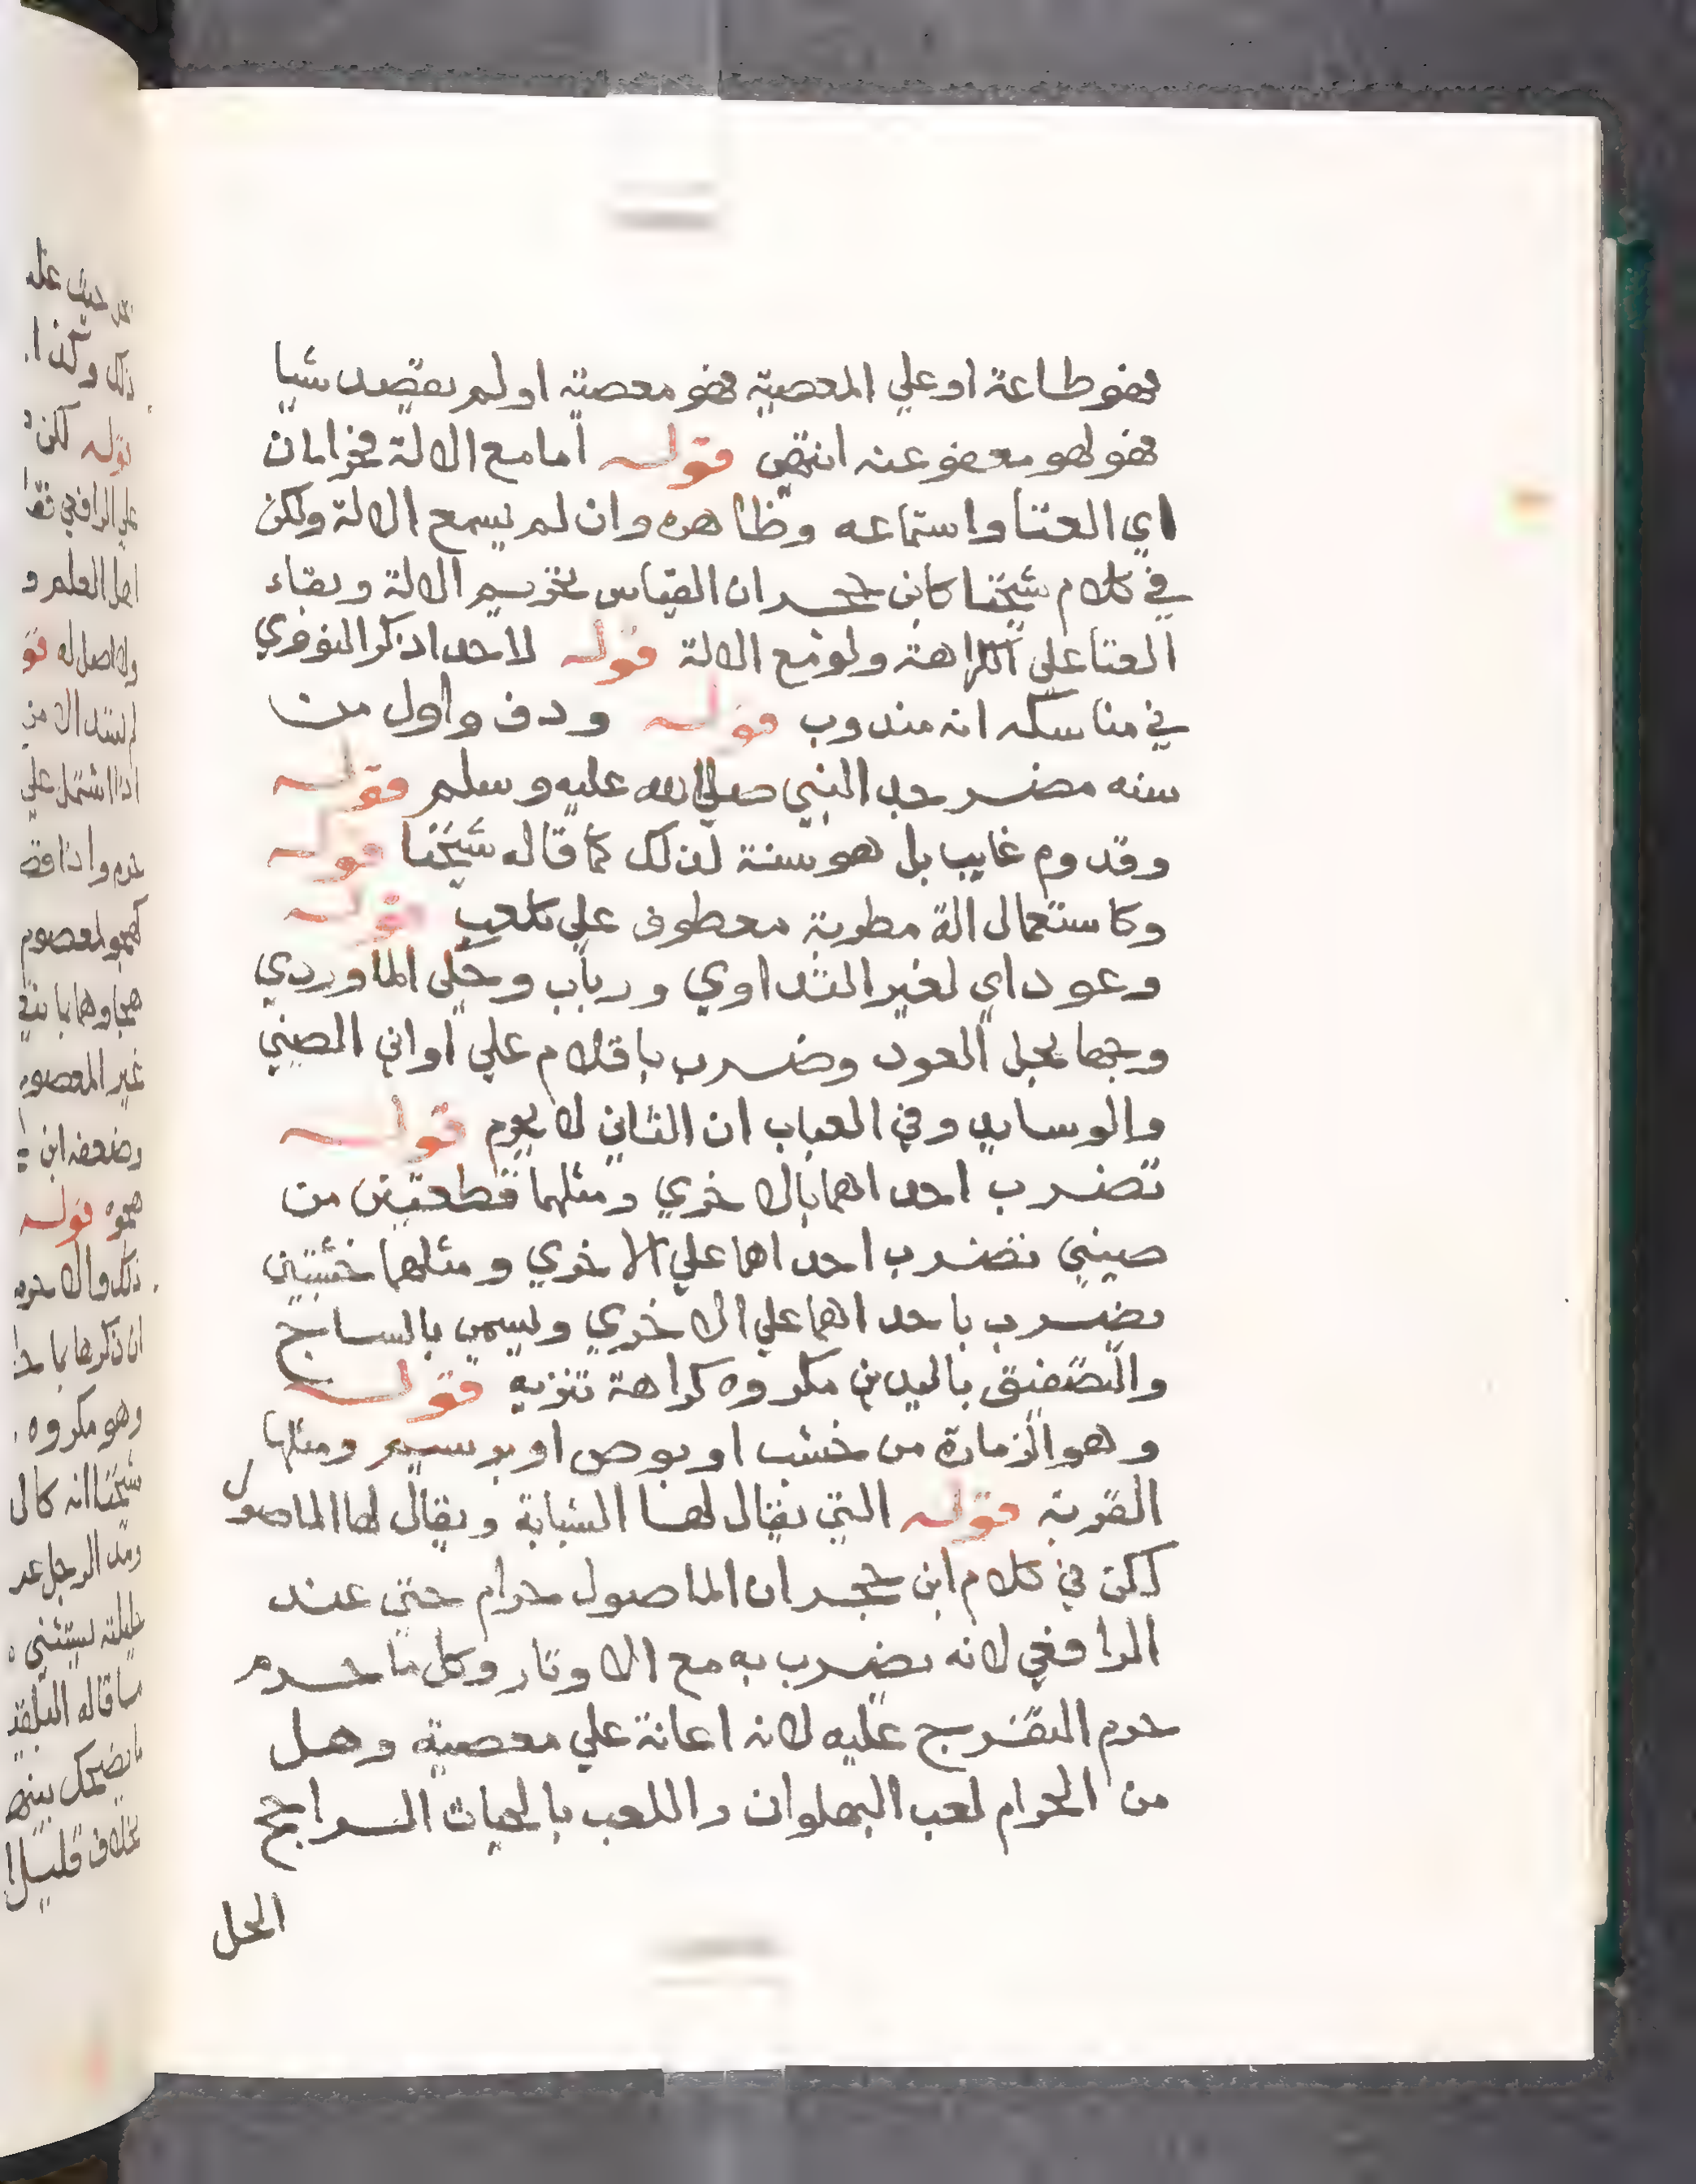 فهو طاعة او علي المعصية فهو معصية او لم يقصد شيا
فهو لهو معفو عنه انتهى قوله اما مع الالة فحرامان
اي الغنا واستماعه وظاهره وان لم يسمع الالة ولكن
في كلام شيخنا كابن حجر ان القياس تحريم الالة وبقاء
الغنا علي الكراهة ولو مع الالة قوله لا حدا ذكر النووي
في مناسكه انه مندوب قوله ودف واول من
سنه مضر جد النبي صلي الله عليه وسلم قوله
وقدوم غايب بل هو سنة لذلك كما قاله شيخنا قوله
وكاستعمال الة مطربة معطوف علي كلعب قوله
وعود اي لغير التداوي ورباب وحكى الماوردي
وجها بحل العود وضرب باقلام علي اواني الصيني
والوسايد وفي العباب ان الثاني لا يحرم قوله
تضرب احداهما بالاخري ومثلهما قطعتين من
صيني تضرب احداهما علي الاخري ومثلهما خشبتين
يضرب باحداهما علي الاخري ويسمى بالساج
والتصفيق باليدين مكروه كراهة تنزيه قوله
وهو الزمارة من خشب او بوص او برسيم ومثلها
القربة قوله التي يقال لها الشبابة ويقال لها الماصول
لكن في كلام ابن حجر ان الماصول حرام حتى عند
الرافعي لانه يضرب به مع الاوتار وكل ما حرم
حرم التفرج عليه لانه اعانة علي معصية وهل
من الحرام لعب البهلوان واللعب بالحيات الراجح
الحل